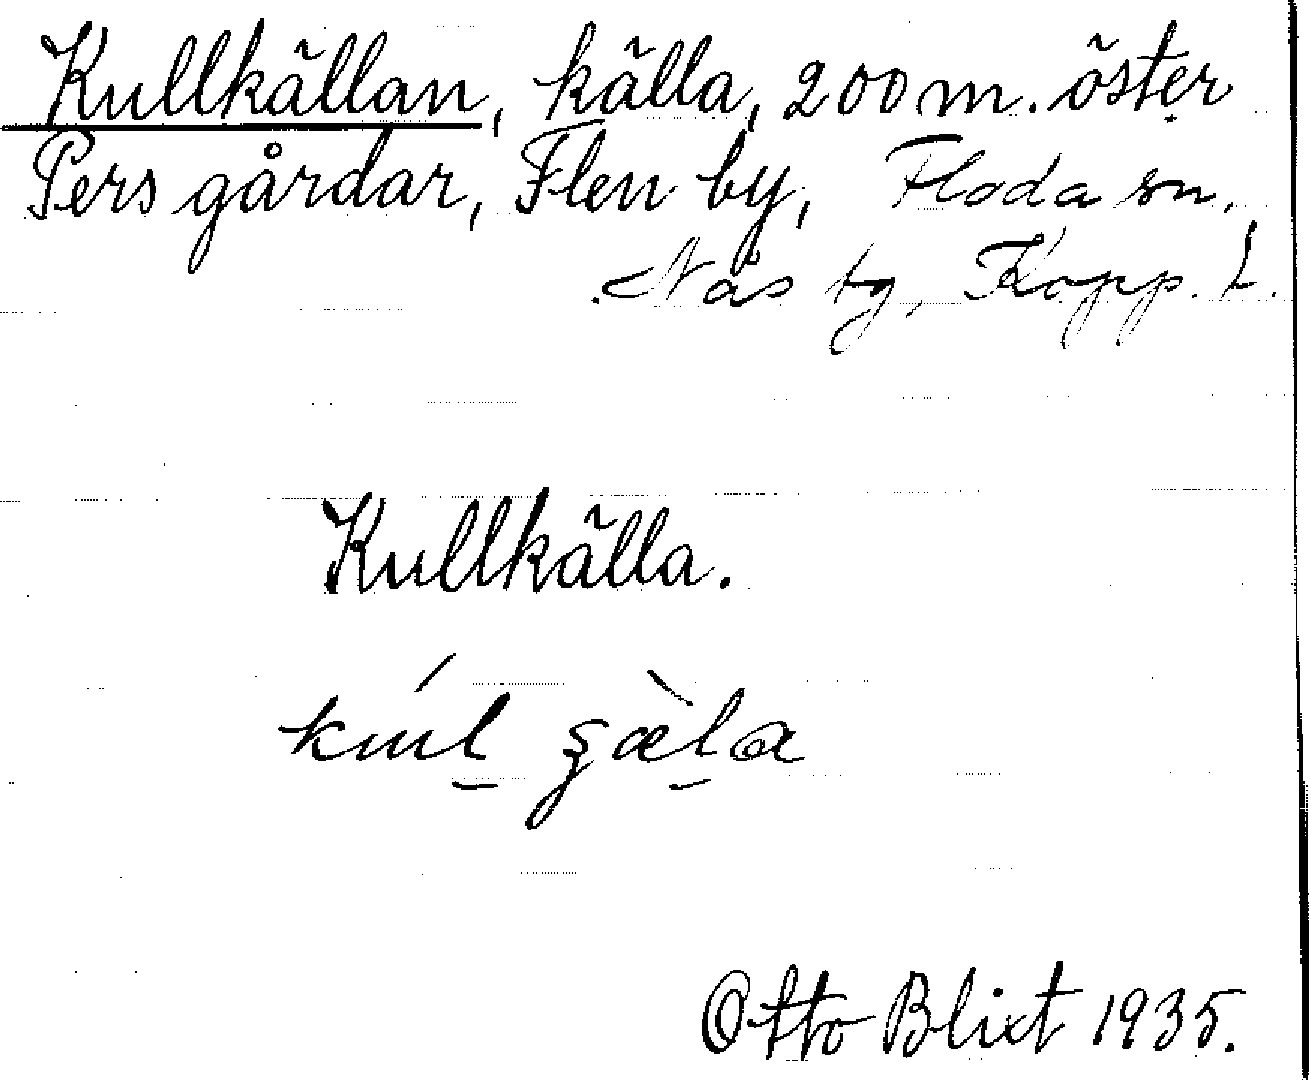 Kullkällan, källa, 200 m. öster
Pers gårdar, Flen by, Floda sn,
Nås tg, Kopp. l.
Kullkälla.
Otto Blixt 1935.